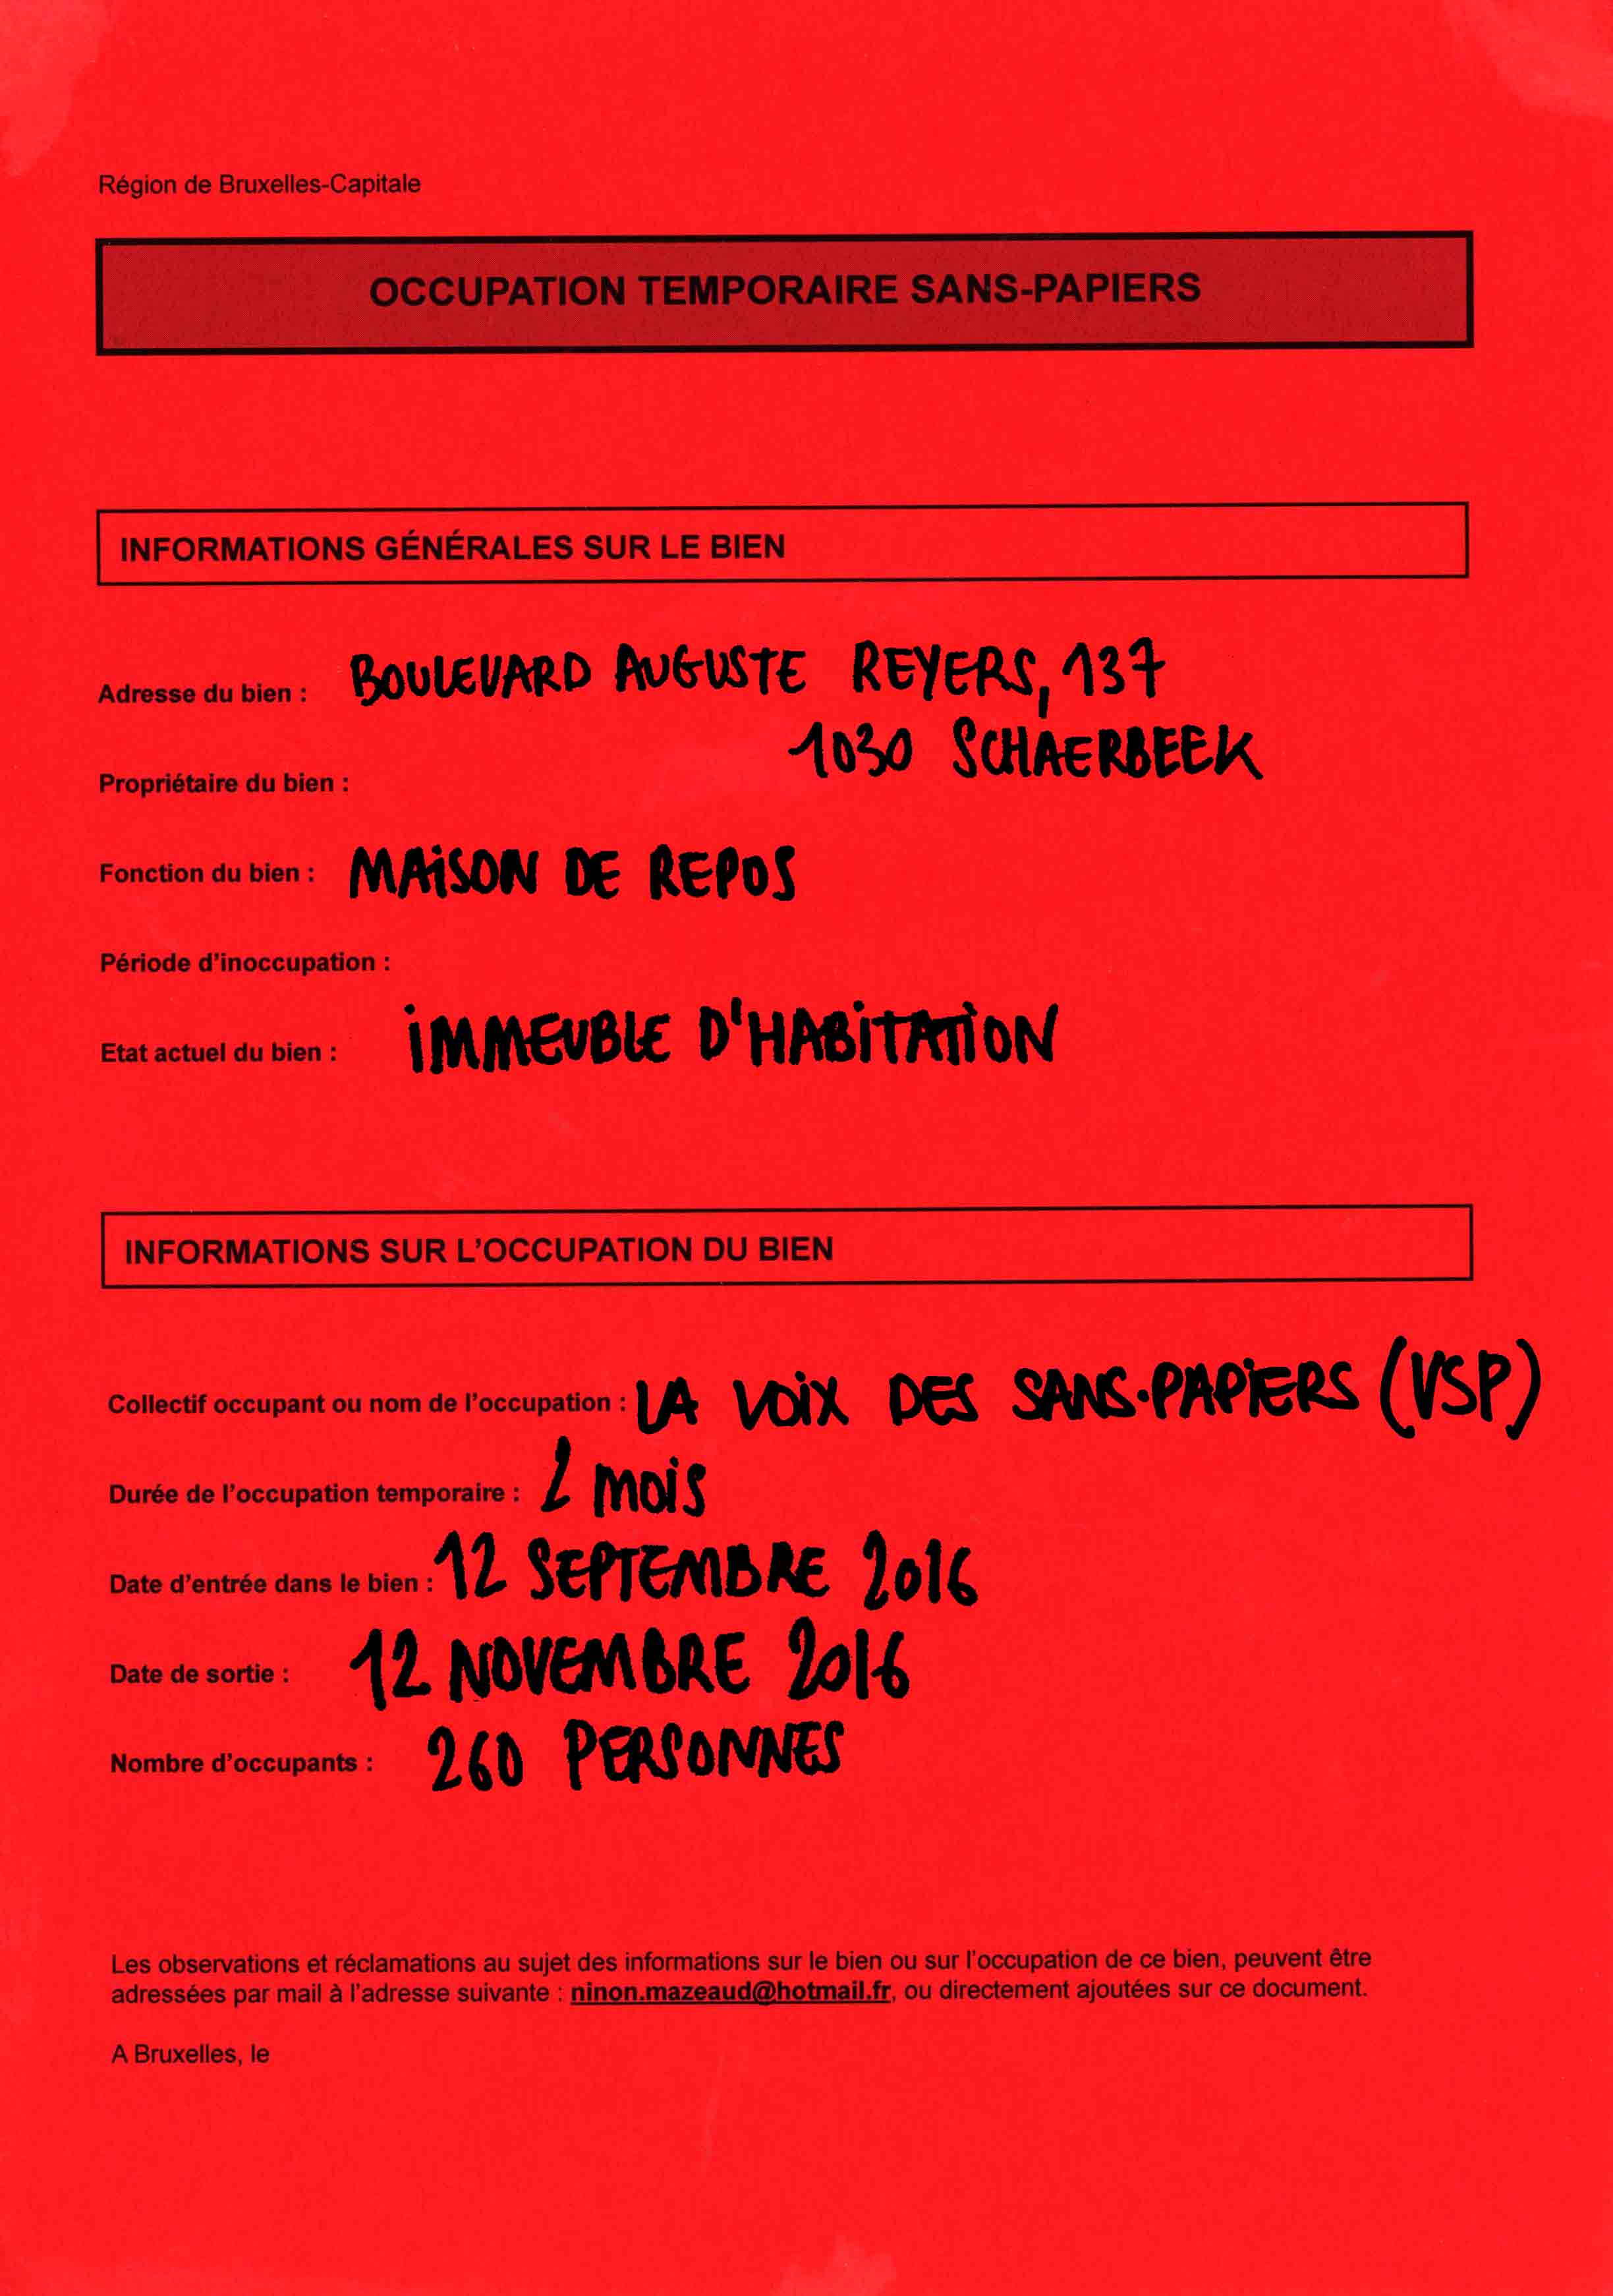 Région de Bruxelles-Capitale
OCCUPATION TEMPORAIRE SANS-PAPIERS
INFORMATIONS GÉNÉRALES SUR LE BIEN
Adresse du bien : BOULEVARD AUGUSTE REYERS, 137
1030 SCHAERBEEK
Propriétaire du bien :
Fonction du bien : MAISON DE REPOS
Période d'inoccupation :
Etat actuel du bien : IMMEUBLE D'HABITATION
INFORMATIONS SUR L'OCCUPATION DU BIEN
Collectif occupant ou nom de l'occupation : LA VOIX DES SANS-PAPIERS (VSP)
Durée de l'occupation temporaire : 2 MOIS
Date d'entrée dans le bien : 12 SEPTEMBRE 2016
Date de sortie : 12 NOVEMBRE 2016
Nombre d'occupants : 260 PERSONNES
Les observations et réclamations au sujet des informations sur le bien ou sur l'occupation de ce bien, peuvent être
adressées par mail à l'adresse suivante : ninon.mazeaud@hotmail.fr, ou directement ajoutées sur ce document.
A Bruxelles, le